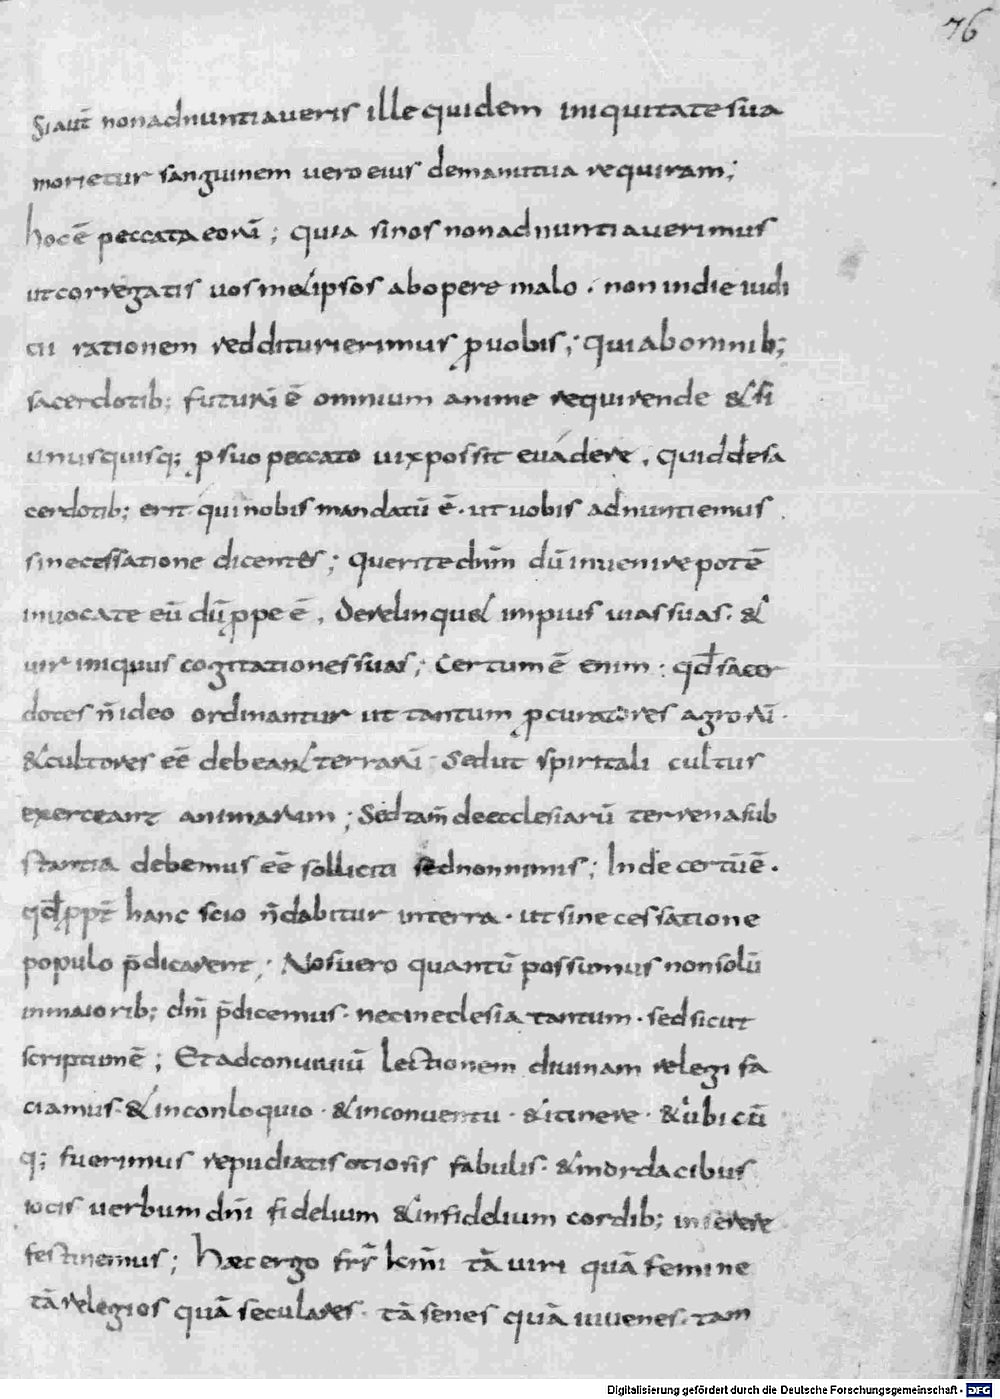 76
Si aut̄ non adnuntiaveris ille quidem iniquitate sua
morietur sanguinem uero eius de manu tua requiram;
hoc ē peccata eorū; quia si nos non adnuntiauerimus
ut corregatis uosmet ipsos ab opere malo. non in die iudi
cii rationem reddituri erimus ꝓ uobis; qui ab omnib;
sacerdotib; futurū ē omnium anime requirende & si
unusquisq; ꝑ suo peccato uix possit euádere, quid de sa
cerdotib; erit qui nobis mandatū ē. ut uobis adnuntiemus
sine cessatione dicentes; Querite dn̄m dū inuenire potē
inuocate eū dū ꝓpe ē, derelinqu& impius uias suas. &
uir iniquus cogitationes suas; Certum ē enim: qđ sacer
dotes n̄ ideo ordinantur ut tantum ꝓcuratores agrorū.
& cultores eē debean& terrarū. Sed ut spiritali cultus
exerceant animarum; Sed tam̄ de ecclesiarū terrena sub
stantia debemus eē solliciti sed non nimis; Inde certū ē.
qđ ꝓpt̄ hanc scio n̄ dabitur in terra. ut sine cessatione
populo p̄dicarent; Nos uero quantū possumus non solū
in maiorib; dn̄i p̄dicemus. nec in eclesia tantum. sed sicut
scriptum ē; Et ad conuiuiū lectionem diuinam relegi fa
ciamus. & in conloquio. & in conuentu. & itinere. & ubicū
q; fuerimus repudiatis otiosis fabulis. & mordacibus
iocis uerbum dn̄i fidelium & infidelium cordib; inserere
festinemus; Haec ergo frr̄ km̄i tā uiri quā femine
tā relegios quā seculares. tā senes quā iuuenes. tam
Digitalisierung gefördert durch die Deutsche Forschungsgemeinschaft - DFG